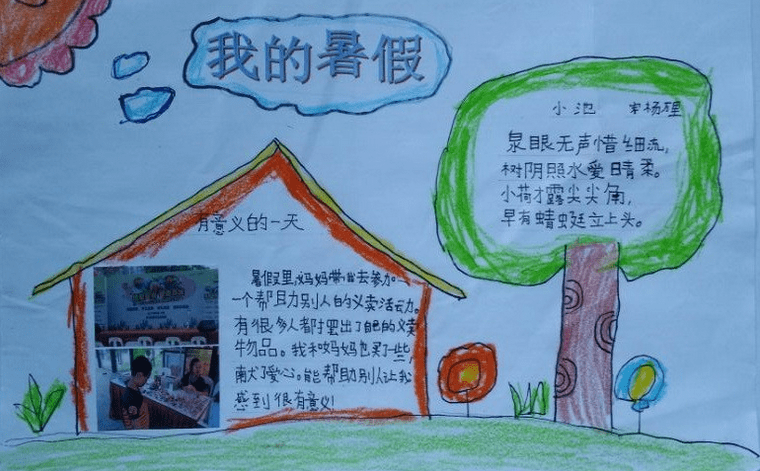 我的暑假
小池 宋杨理
泉眼无声惜细流，
树阴照水爱晴柔。
小荷才露尖尖角，
早有蜻蜓立上头。
有意义的一天
暑假里,妈妈带我去参加
一个帮助别人的义卖活动。
有很多人都摆出了自己的义卖
物品。我和妈妈也买了一些,
献了爱心。能帮助别人让我
感到很有意义!